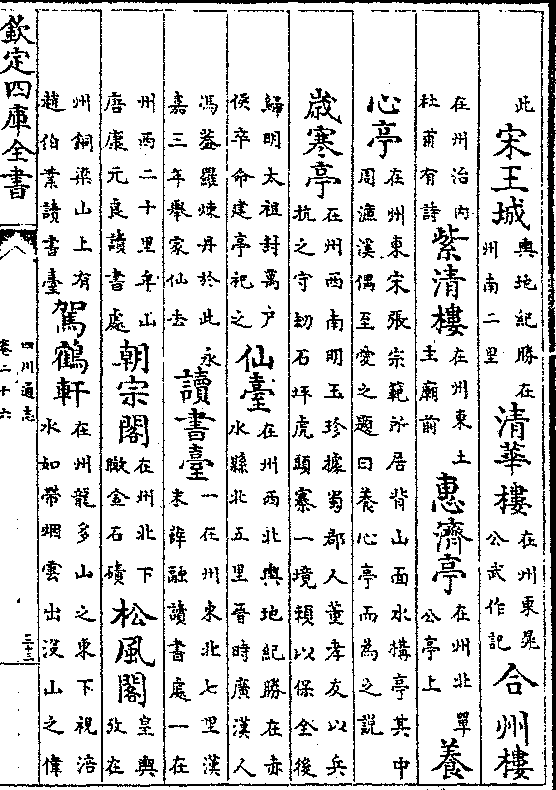 此宋王城輿地紀勝在州南二里清華樓在州東晁公武作記合州樓
在州治内杜甫有詩紫清樓在州東土主廟前惠濟亭在州北單公亭上養
心亭在州東宋張宗範所居背山面水搆亭其中周濓溪偶至愛之題曰養心亭而為之說
嵗寒亭在州西南明玉珍據蜀郡人董孝友以兵抗之守劫石坪虎頭寨一境頼以保全後
歸明太祖封萬户侯卒命建亭祀之仙臺在州西北輿地紀勝在赤水縣北五里晉時廣漢人
馮葢羅煉丹於此永嘉三年舉家仙去讀書臺一在州東北七里漢末諱融讀書處一在
州西二十里牟山唐康元良讀書處朝宗閣在州北下瞰金石磧松風閣皇輿攷在
州銅梁山上有趙伯業讀書臺駕鶴軒在州龍多山之東下視涪水如帶烟雲出没山之偉
欽定四庫全書
四川通志
卷二十六
三十三